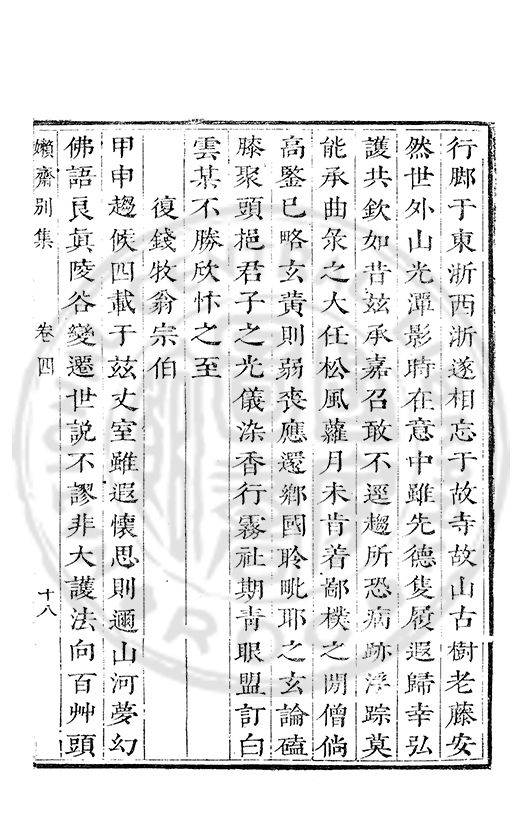 行脚于東浙西浙遂相忘于故寺故山古樹老藤安
然世外山光潭影時在意中雖先德隻履遐歸幸弘
護共欽如昔玆承嘉召敢不逕趨所恐病跡浮踪莫
能承曲彔之大任松風蘿月未肯着鄙樸之閒僧倘
高鑒已略玄黃則弱喪應還鄉國聆毗耶之玄論磕
膝聚頭挹君子之光儀染香行霧社期青眼盟訂白
雲某不勝欣忭之至
復錢牧翁宗伯
甲申趨候四載于玆丈室雖遐懷思則邇山河夢幻
佛語良眞陵谷變遷世說不謬非大護法向百艸頭
嬾齋別集
卷四
十八